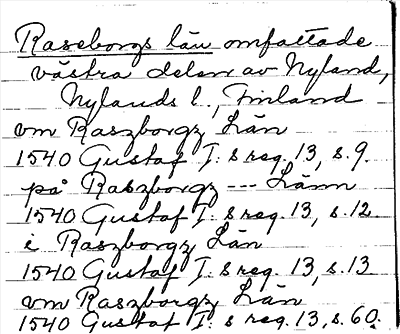 Raseborgs län omfattade
västra delen av Nyland,
Nylands l., Finland
vm Raszborgz Län
1540 Gustaf I: s reg. 13, s. 9.
på Raszborgz --- Länn
1540 Gustaf I: s reg. 13, s. 12
i Raszborgz Län
1540 Gustaf I: s reg. 13, s. 13
vm Raszborgz Län
1540 Gustaf I: s reg. 13, s. 60.